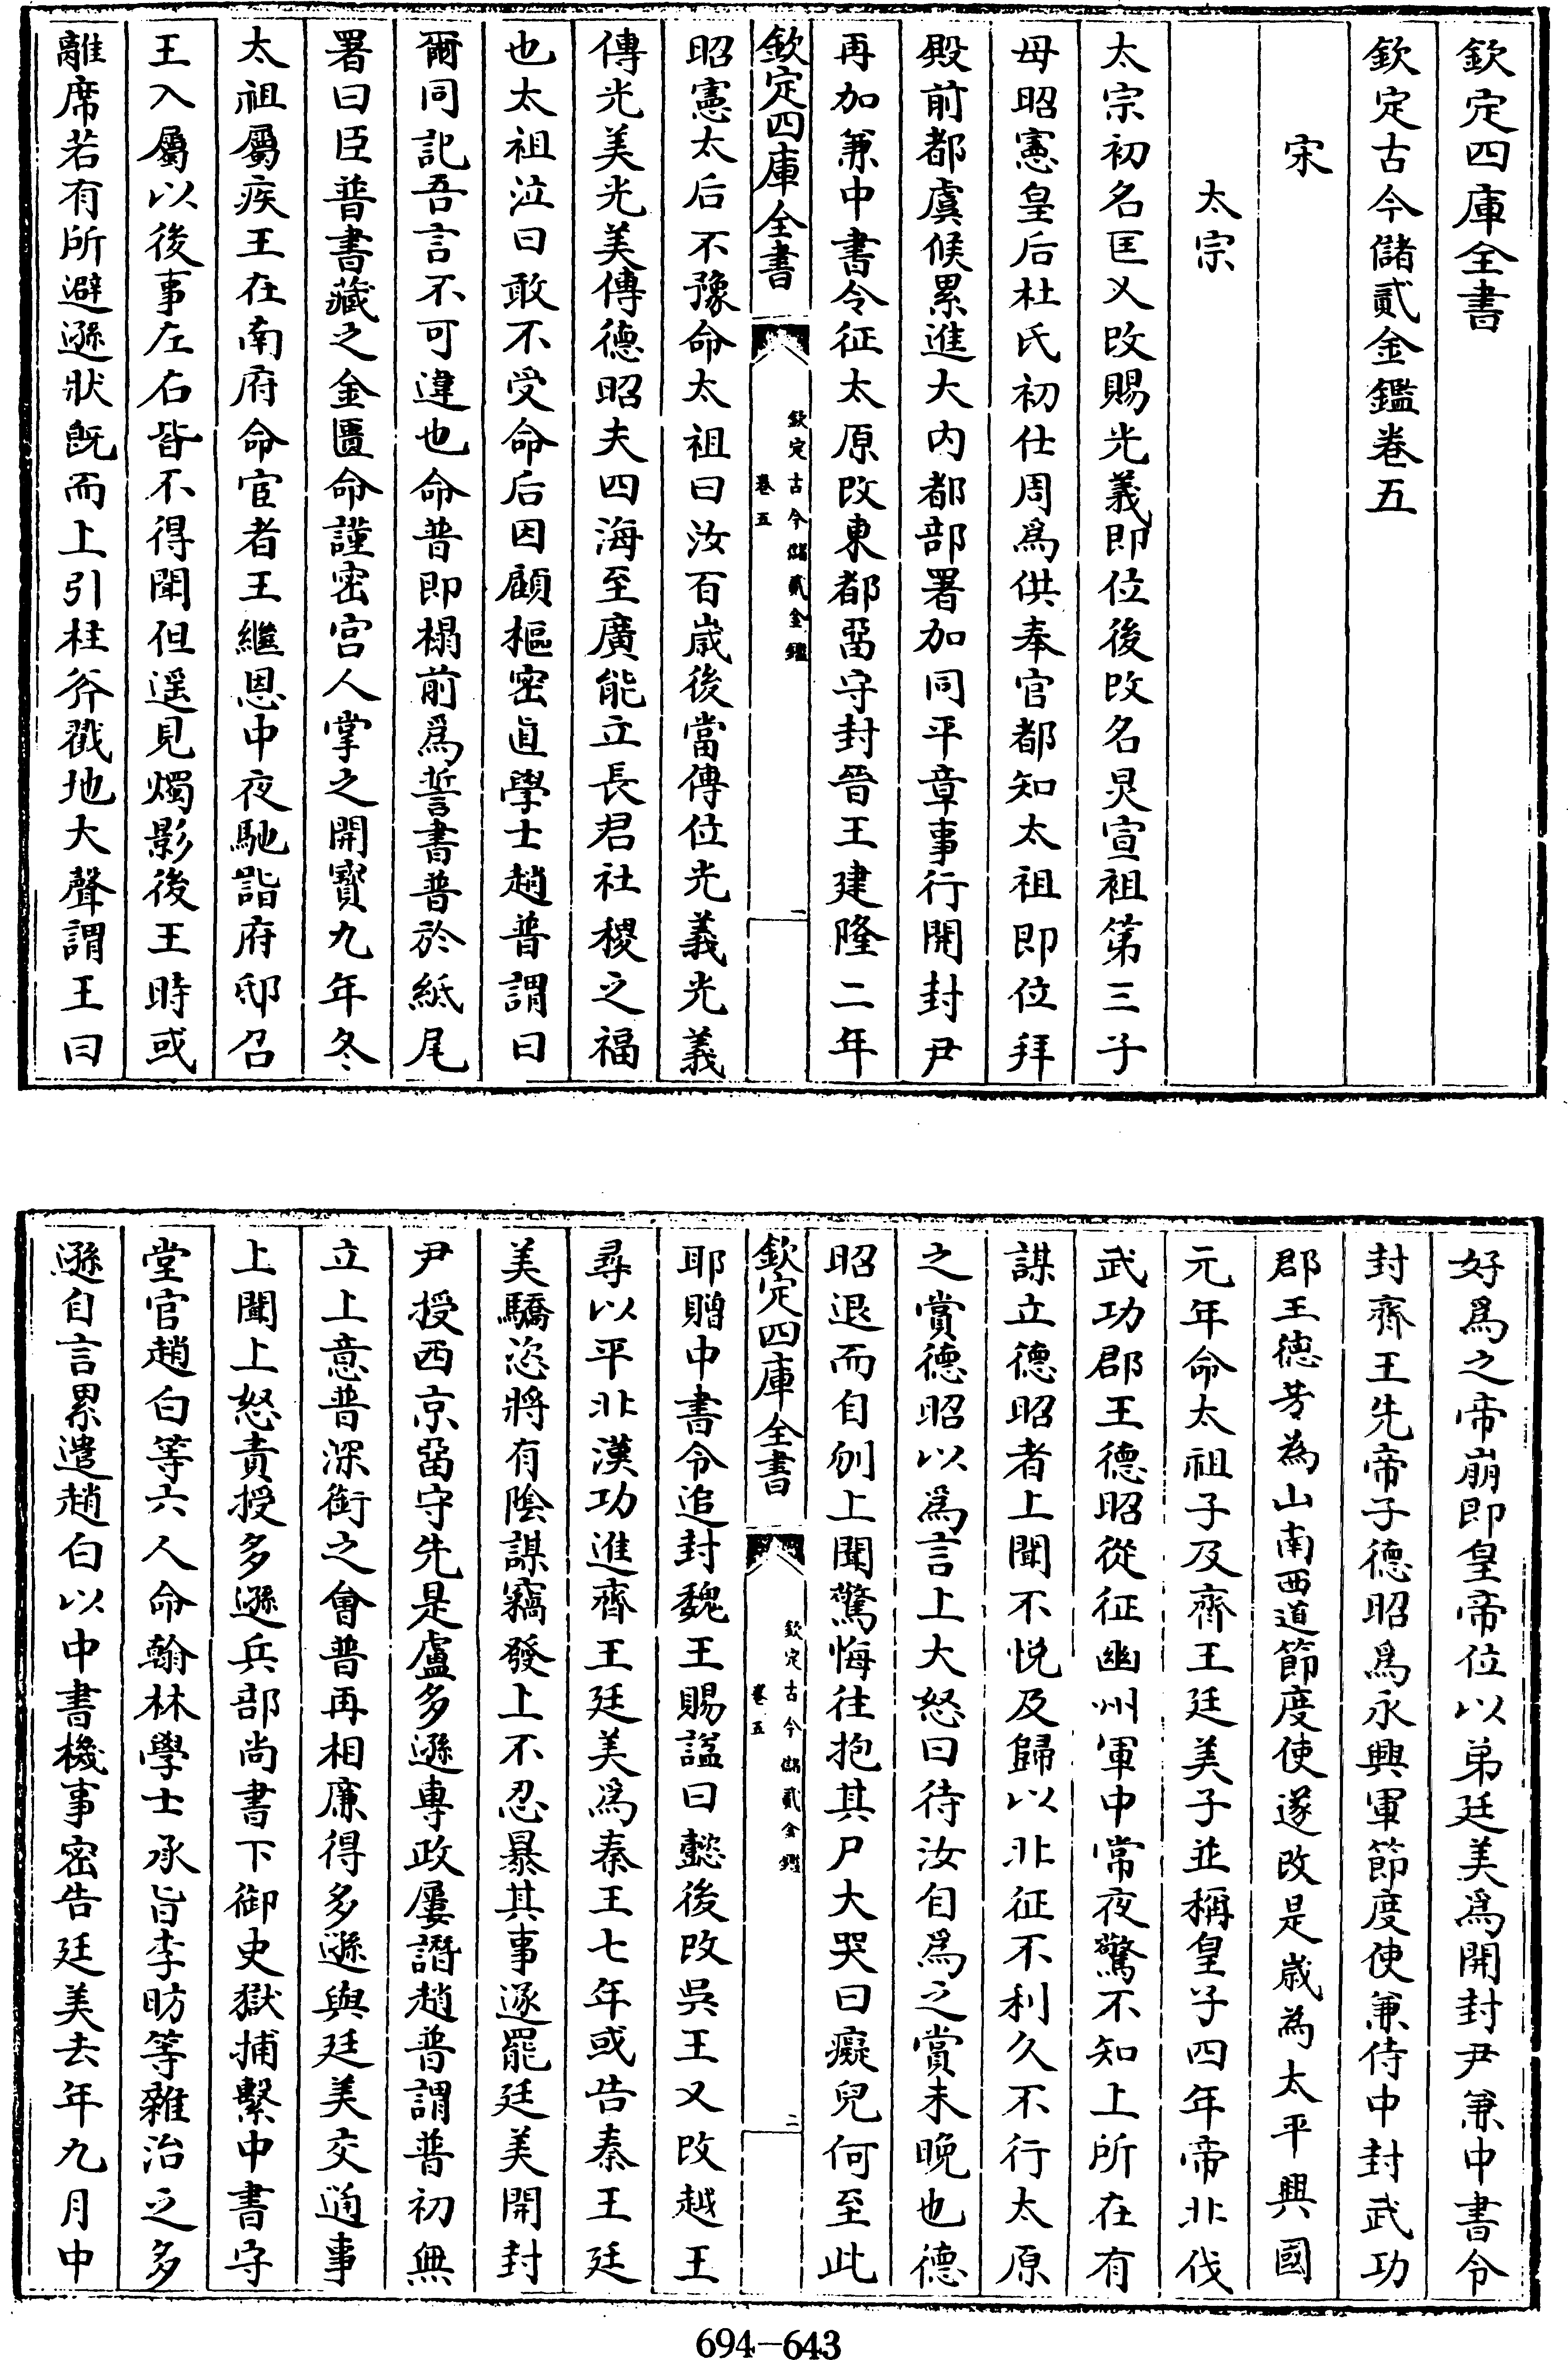 欽定四庫全書
欽定古今儲貳金鑑卷五
宋
太宗
太宗初名匡乂改賜光義即位後改名炅宣祖第三子
母昭憲皇后杜氏初仕周爲供奉官都知太祖即位拜
殿前都虞候累進大内都部署加同平章事行開封尹
再加兼中書令征太原改東都留守封晉王建隆二年
欽定四庫全書
欽定古今儲貳金鑑
卷五
一
昭憲太后不豫命太祖曰汝百歲後當傳位光義光義
傳光美光美傳德昭夫四海至廣能立長君社稷之福
也太祖泣曰敢不受命后因顧樞密直學士趙普謂曰
爾同記吾言不可違也命普即榻前爲誓書普於紙尾
署曰臣普書藏之金匱命謹密宫人掌之開寶九年冬
太祖屬疾王在南府命宦者王繼恩中夜馳詣府邸召
王入屬以後事左右皆不得聞但遥見燭影後王時或
離席若有所避遜狀既而上引柱斧戳地大聲謂王曰
好爲之帝崩即皇帝位以弟廷美爲開封尹兼中書令
封齊王先帝子德昭爲永興軍節度使兼侍中封武功
郡王德芳為山南西道節度使遂改是歲為太平興國
元年命太祖子及齊王廷美子並稱皇子四年帝北伐
武功郡王德昭從征幽州軍中常夜驚不知上所在有
謀立德昭者上聞不悦及歸以北征不利久不行太原
之賞德昭以爲言上大怒曰待汝自爲之賞未晚也德
昭退而自刎上聞驚悔往抱其尸大哭曰癡兒何至此
欽定四庫全書
欽定古今儲貳金鑑
卷五
二
耶贈中書令追封魏王賜諡曰懿後改吳王又改越王
尋以平北漢功進齊王廷美爲秦王七年或告秦王廷
美驕恣將有陰謀竊發上不忍暴其事遂罷廷美開封
尹授西京留守先是盧多遜專政屢譖趙普謂普初無
立上意普深銜之會普再相廉得多遜與廷美交通事
上聞上怒責授多遜兵部尚書下御史獄捕繫中書守
堂官趙白等六人命翰林學士承旨李昉等雜治之多
遜自言累遣趙白以中書機事密告廷美去年九月中
694-643